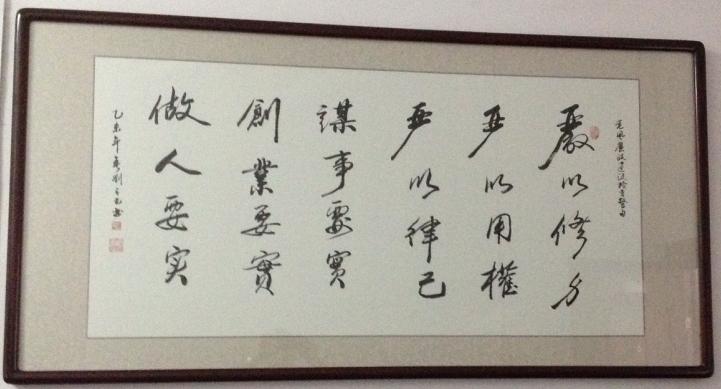 嚴以修身
严以用權
严以律己
謀事要實
創業要實
做人要实
乙未年